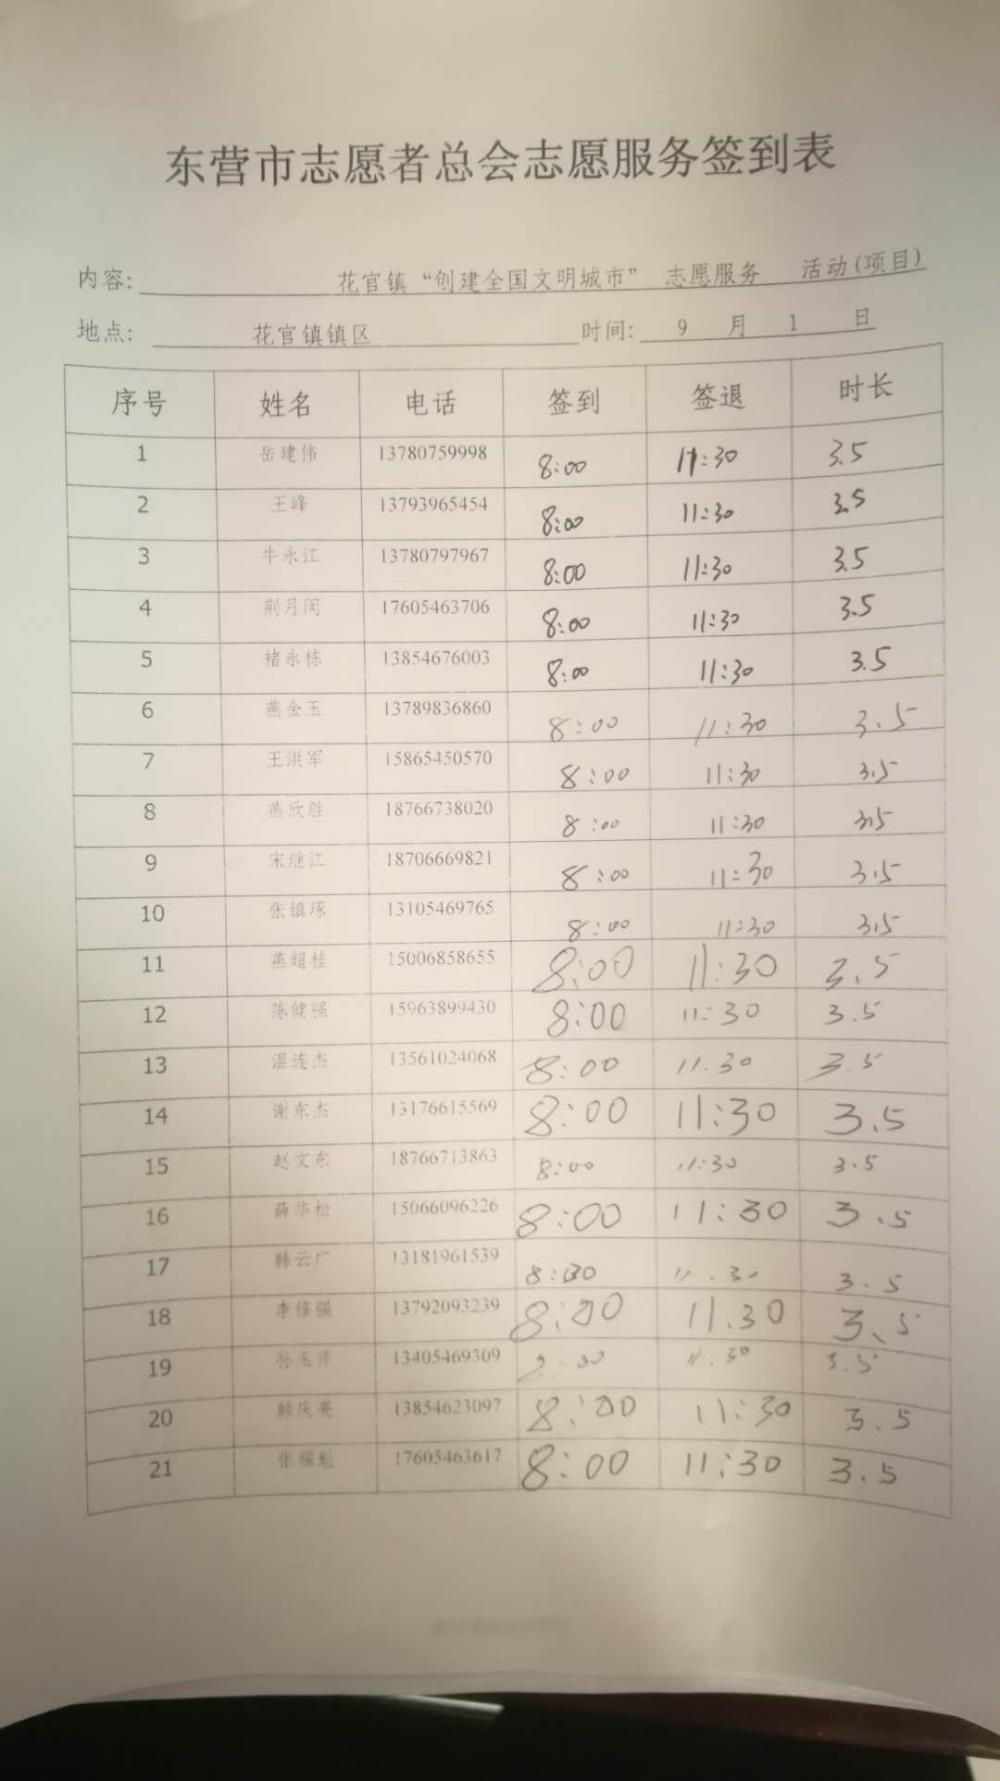 东营市志愿者总会志愿服务签到表
内容: 花官镇“创建全国文明城市” 志愿服务 活动(项目)
地点: 花官镇镇区 时间: 9 月 1 日
序号 姓名 电话 签到 签退 时长
1 岳建伟 13780759998 8:00 11:30 3.5
2 王峰 13793965454 8:00 11:30 3.5
3 牛永江 13780797967 8:00 11:30 3.5
4 荆月闵 17605463706 8:00 11:30 3.5
5 褚永栋 13854676003 8:00 11:30 3.5
6 燕金玉 13789836860 8:00 11:30 3.5
7 王洪军 15865450570 8:00 11:30 3.5
8 燕欣胜 18766738020 8:00 11:30 3.5
9 宋继江 18706669821 8:00 11:30 3.5
10 张镇琢 13105469765 8:00 11:30 3.5
11 燕超桂 15006858655 8:00 11:30 3.5
12 陈健强 15963899430 8:00 11:30 3.5
13 温连杰 13561024068 8:00 11.30 3.5
14 谢东杰 13176615569 8:00 11:30 3.5
15 赵文东 18766713863 8:00 11:30 3.5
16 薛华松 15066096226 8:00 11:30 3.5
17 韩云广 13181961539 11.30 3.5
18 李修强 13792093239 8:00 11.30 3.5
19 孙玉芹 13405469309 11.30 3.5
20 韩庆亮 13854623097 8:00 11:30 3.5
21 张福魁 17605463617 8:00 11:30 3.5